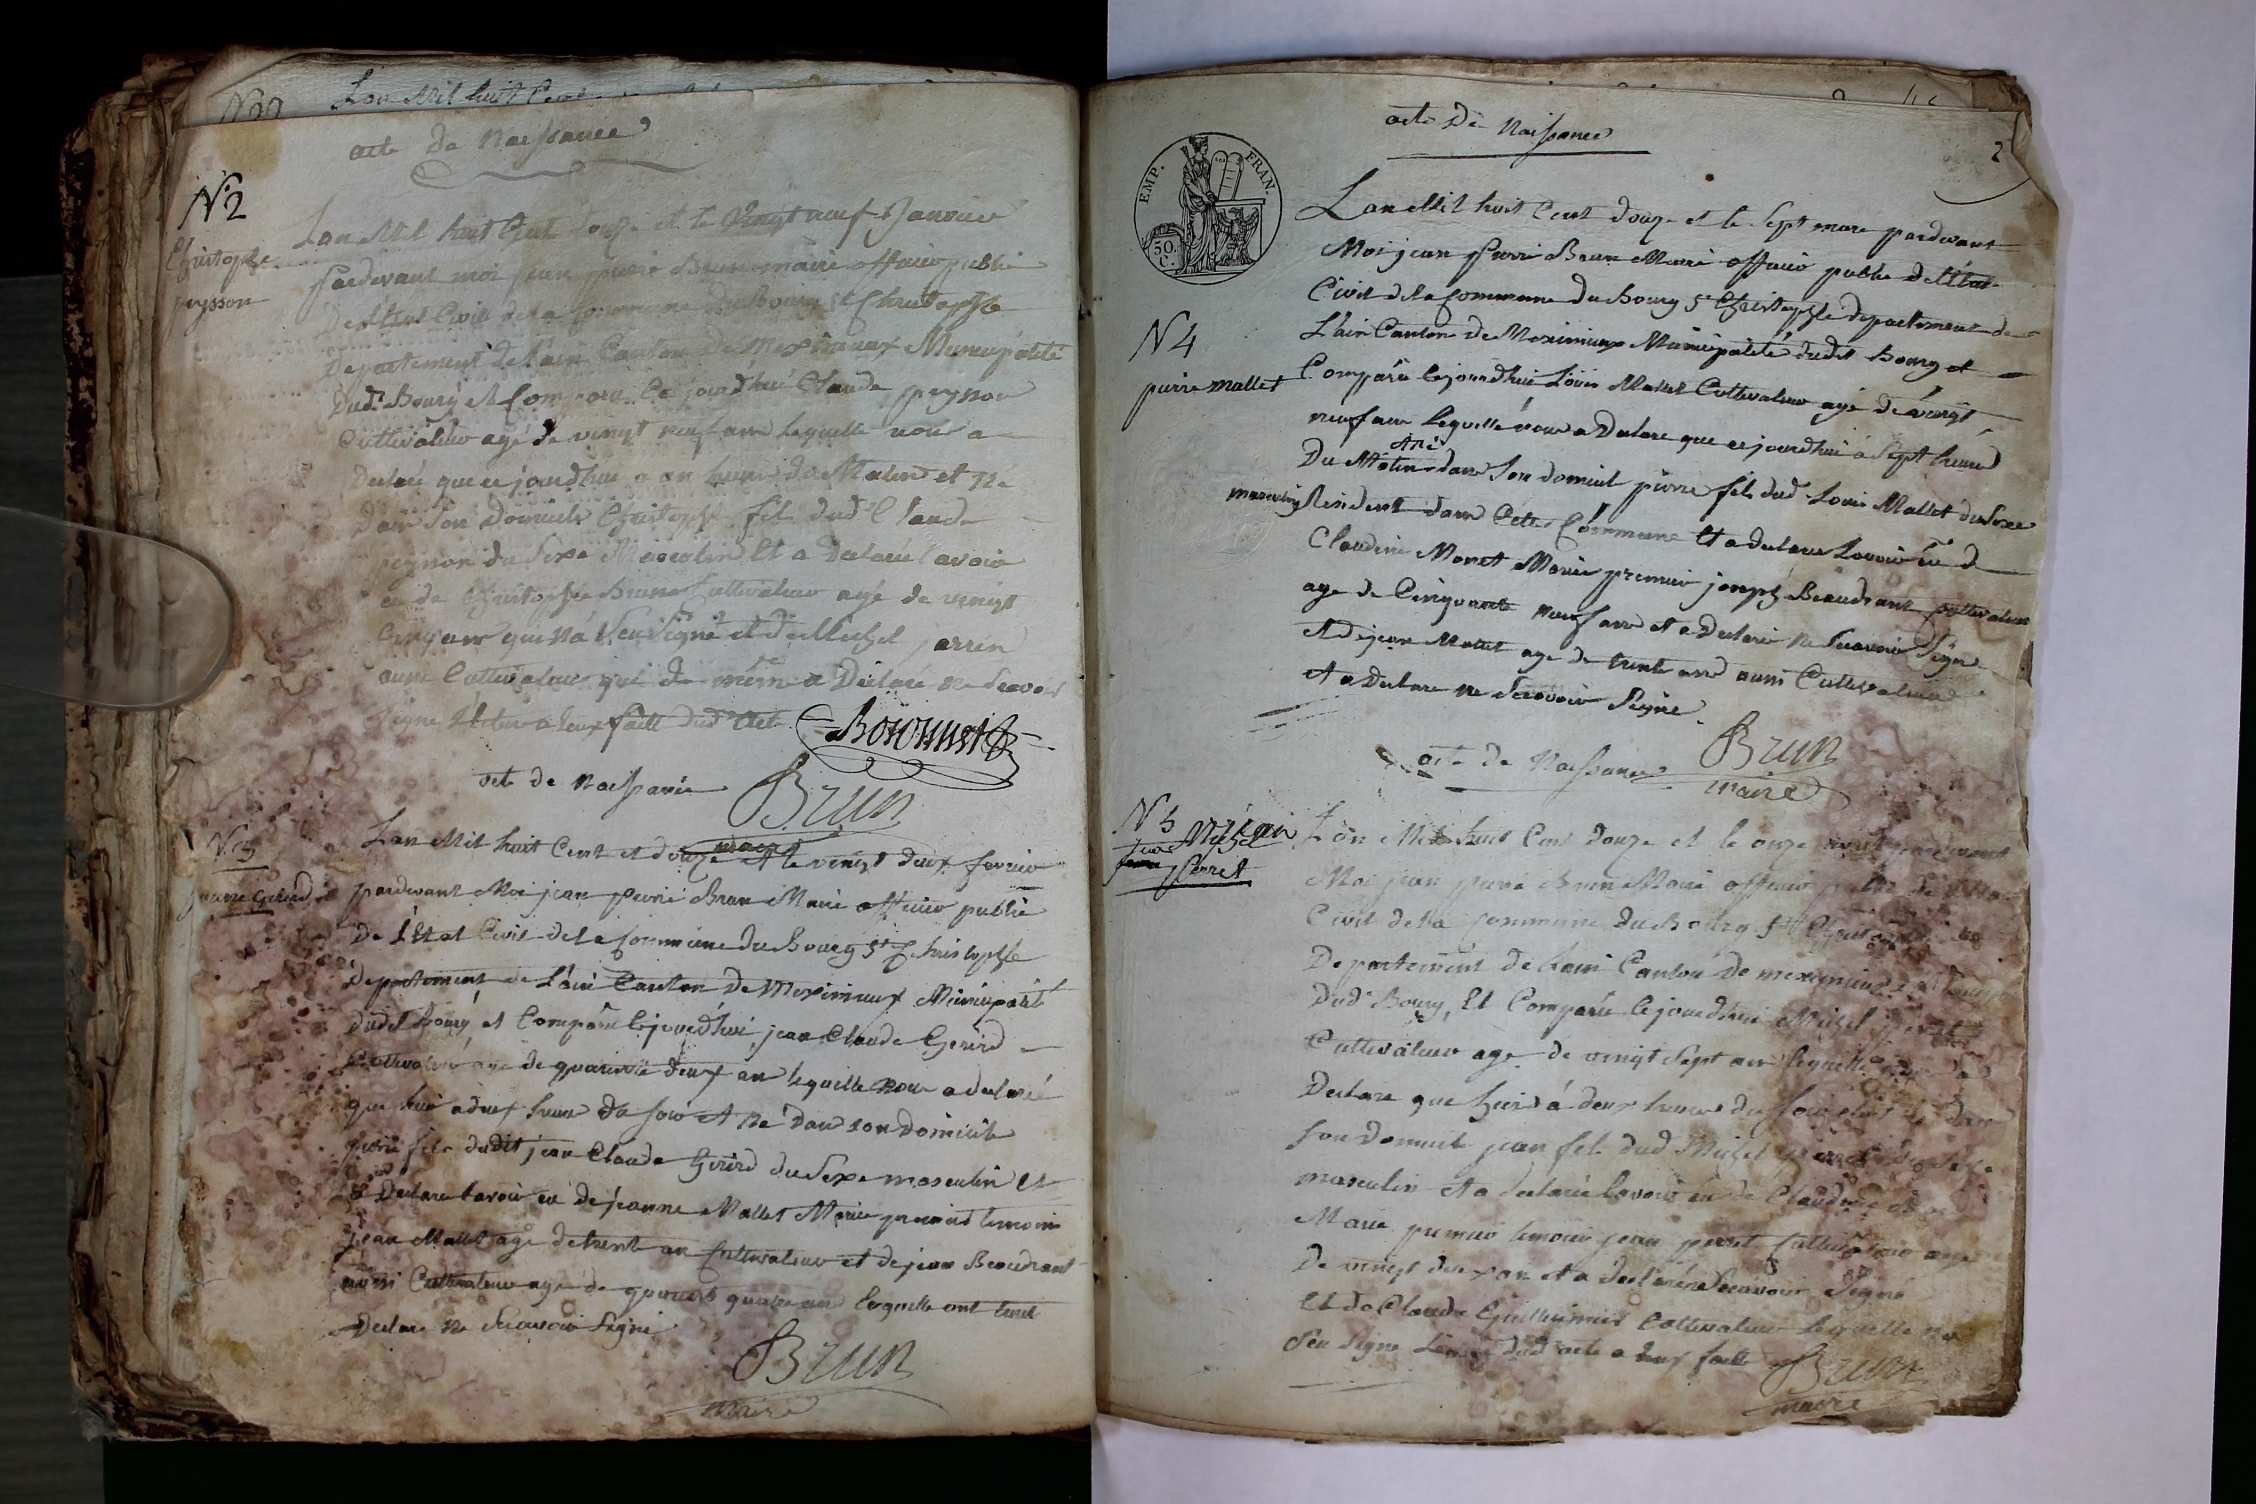 acte de Naissance
N.2
Christophe
peysson
Lan Mil huit Cent douze et le vingt neuf Janvier
Pardevant moi jean pierre Brun maire officier public
De l'Etat Civil de la Commune du Bourg St Christophle
Departement de l'ain Canton de Meximieux Municipalité
Dudt Bourg et Comparu Ce jourd'hui Claude peysson
Cultivateur agé de vingt neuf ans lequelle nous a
Declaré que ce jourdhui a heure du Matin et né
Dans son Domicile Christophe fils dudt Claude
peysson du Sexe Masculin Et a Declaré lavoir
eu de Christophe Brun Cultivateur agé de vingt
Cinq ans qui Signé et de Michel perrin
aussi Cultivateur qui de même a Declaré ne Scavoir
Signe Lectur a eux faitte dudt acte
Brun
maire
acte de Naissance
N.3
pierre Gerird
Lan Mil huit Cent et douze Et le vingt deux fevrier
pardevant Moi jean pierre Brun Maire officier public
De l'Etat Civil de la Commune du Bourg St Christophle
departement de L'ain Canton De Meximieux Municipalité
dudit Bourg et Comparu Cejourdhui jean Claude Gerird
Cultivateur agé de quarante deux an lequelle nous a declaré
que hier a deux heure du soir Et né Dans son Domicile
pierre fils dudit jean Claude Gerird du Sexe masculin Et
a Declare lavoir eu de jeanne Mallet Mariée premier temoin
jean Mallet agé de trente an Cultivateur et de jean Beaudrant
aussi Cultivateur agé de quatre ans lequelle ont tout
Declare ne Scavoir Signé
Brun
maire
acte De Naissance
2
EMP. FRAN.
50. C.
Lan Mil huit Cent douze et le Sept mars pardevant
Moi jean Pierre Brun Maire officier public De l'Etat
Civil de la Commune du Bourg St Christophle departement de
L'ain Canton de Meximieux Municipalité dudit Bourg et
N 4
pierre mallet
Comparu Cejourdhui Louis Mallet Cultivateur agé de vingt
neuf ans lequelle nous a Declare que cejourdhui a Sept heure
Du Matin dans Son domicile pierre fils dudt Louis Mallet du Sexe
masculin Residant dans Cette Commune Et a declare Lavoir eu de
Claudine Monet Mariée premier joseph Beaudrant Cultivateur
age de Cinquante neuf ans et a Declaré ne Scavoir Signe
et de jean Mallet age de trente ans aussi Cultivateur
et a Declare ne Scavoir Signe
Brun
maire
acte de Naissance
N 5
jean Michel
perret
Lan Mil huit Cent Douze et le onze pardevant
Moi jean pierre Brun Maire officier public de l'Etat
Civil de la Commune du Bourg St
Departement de Lain Canton De meximieux
Dudt Bourg, Et Comparu Cejourdhui Michel perret
Cultivateur age de vingt Sept ans lequelle
Declare que hier á deux heure du soir dans
Son Domicile jean fils dudt Michel perret du Sexe
masculin et a declaré lavoir eu de Claudine
Mariée premier temoin jean perret Cultivateur age
De vingt deux an et a declaré ne Scavoir Signé
Et de Claude Guillermier Cultivateur lequelle
Seu Signe dudt acte a eux faitte
Brun
maire